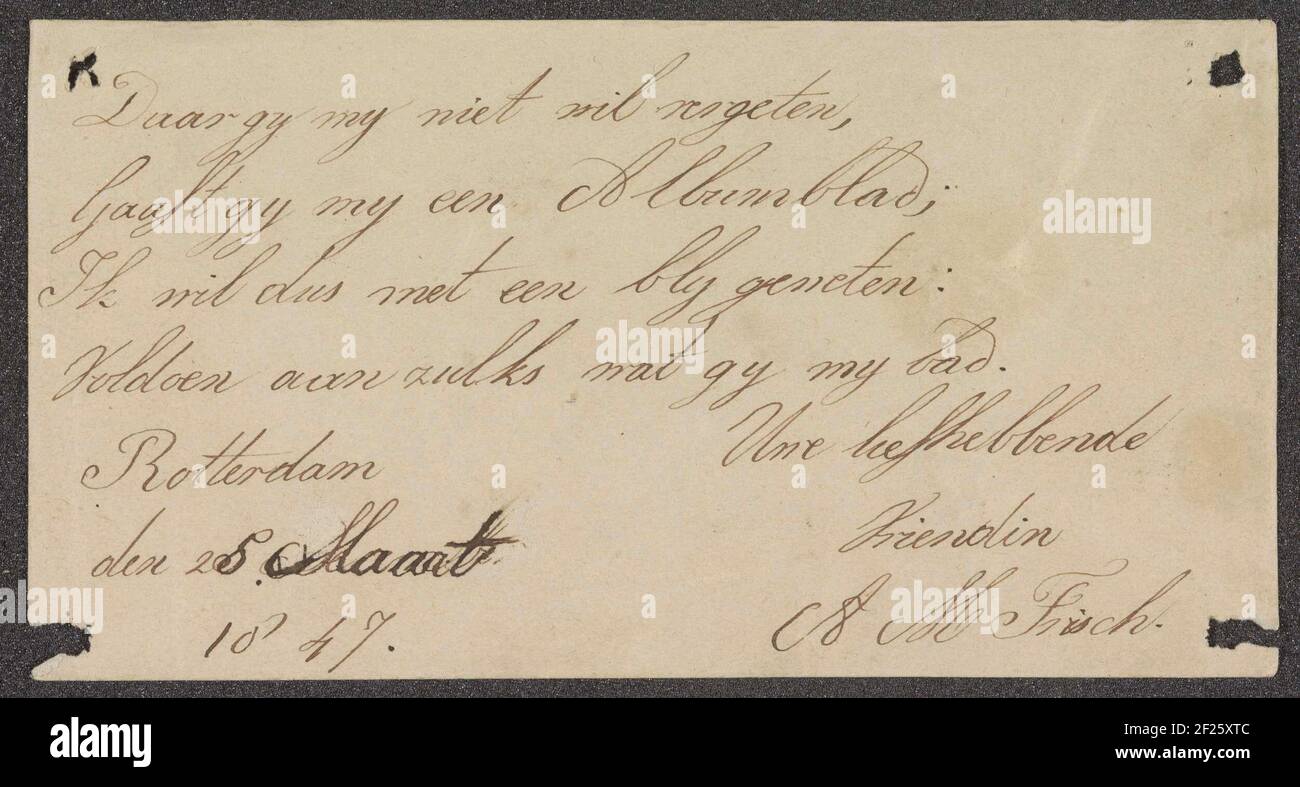 Daar gy my niet wil vergeten,
Gaaft gy my een Albumblad;
Ik wil dus met een bly geweten:
Voldoen aan zulks wat gy my bad.
Uwe liefhebbende
Vriendin
A M Frisch.
Rotterdam
den 25. Maart
1847.
alamy
Image ID: 2F25XTC
www.alamy.com